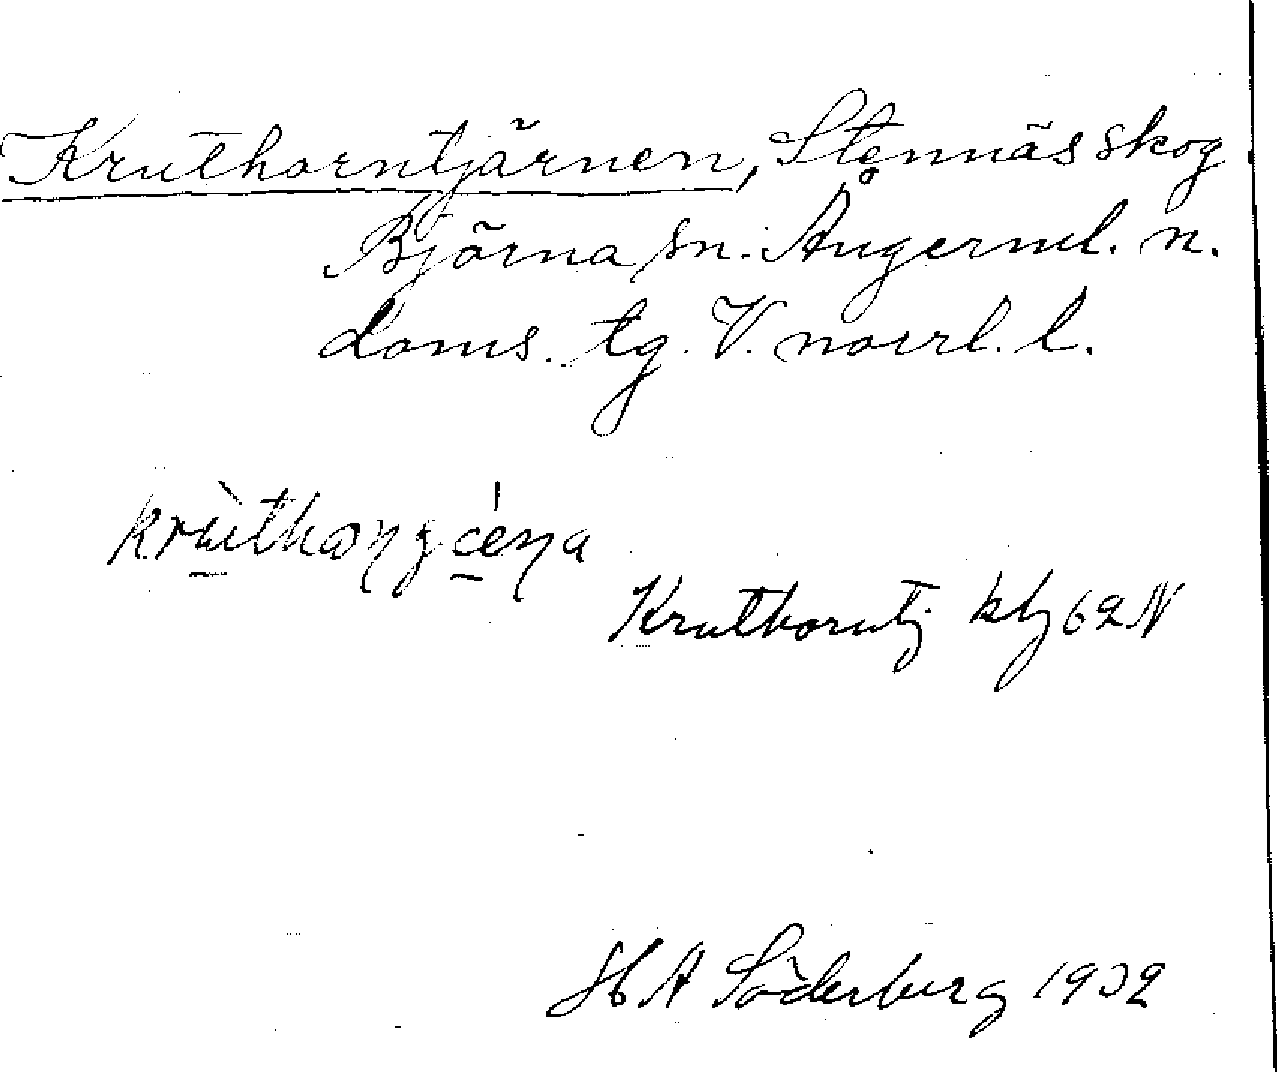 Kruthorntjärnen, Stennäs skog
Björna sn. Ångerml. n.
doms. tg. V. norrl. l.
Kruthorntj kbl 62 N
H A Söderberg 1932